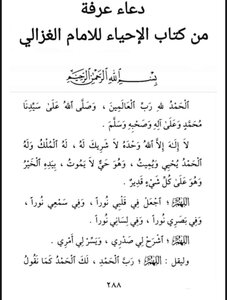 دعاء عرفة
من كتاب الإحياء للامام الغزالي
بِسْمِ اللهِ الرَّحْمٰنِ الرَّحِيمِ
الْحَمْدُ لِلهِ رَبِّ الْعَالَمِينَ ، وَصَلَّى اللهُ عَلَى سَيِّدِنَا
مُحَمَّدٍ وَعَلَى آلِهِ وَصَحْبِهِ وَسَلَّمَ .
لاَ إِلٰهَ إِلاَّ اللهُ وَحْدَهُ لاَ شَرِيكَ لَهُ ، لَهُ الْمُلْكُ وَلَهُ
الْحَمْدُ يُحْيِي وَيُمِيتُ ، وَهُوَ حَيٌّ لاَ يَمُوتُ ، بِيَدِهِ الْخَيْرُ
وَهُوَ عَلَى كُلِّ شَيْءٍ قَدِيرٌ .
اللَّهُمَّ ؛ اجْعَلْ فِي قَلْبِي نُوراً ، وَفِي سَمْعِي نُوراً ،
وَفِي بَصَرِي نُوراً ، وَفِي لِسَانِي نُوراً .
اللَّهُمَّ ؛ اشْرَحْ لِي صَدْرِي ، وَيَسِّرْ لِي أَمْرِي .
وليقل : اللَّهُمَّ ؛ رَبَّ الْحَمْدِ ، لَكَ الْحَمْدُ كَمَا نَقُولُ
٢٨٨